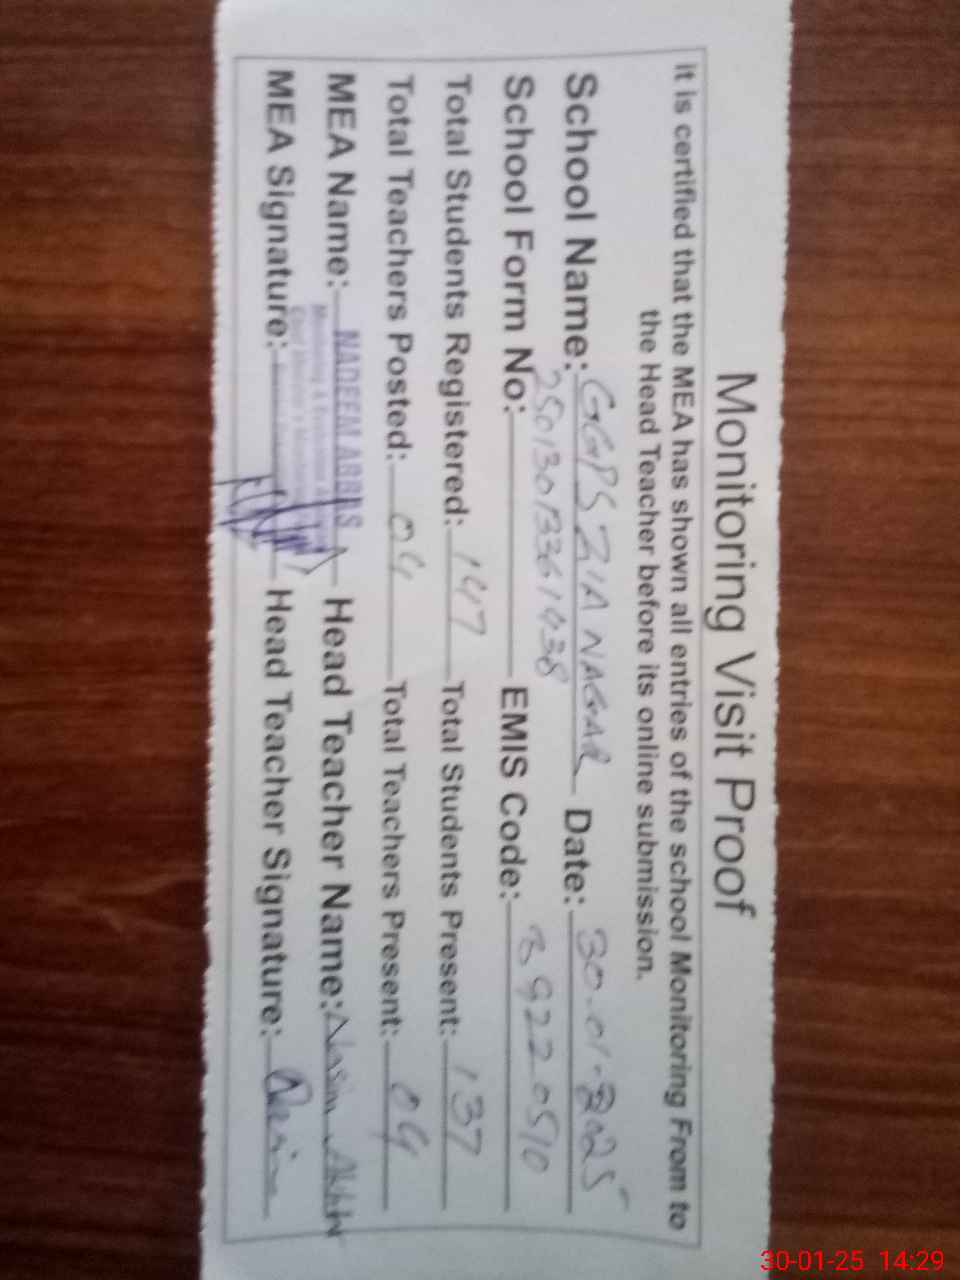 Monitoring Visit Proof
it is certified that the MEA has shown all entries of the school Monitoring From to
the Head Teacher before its online submission.
School Name: GGPS ZIA NAGAR Date: 30-01-2025
School Form No: EMIS Code: 39220510
Total Students Registered: 147 Total Students Present: 137
Total Teachers Posted: 04 Total Teachers Present: 04
MEA Name: NADEEM ABBAS Head Teacher Name: Nasim Akhtar
MEA Signature: Head Teacher Signature:
30-01-25 14:29